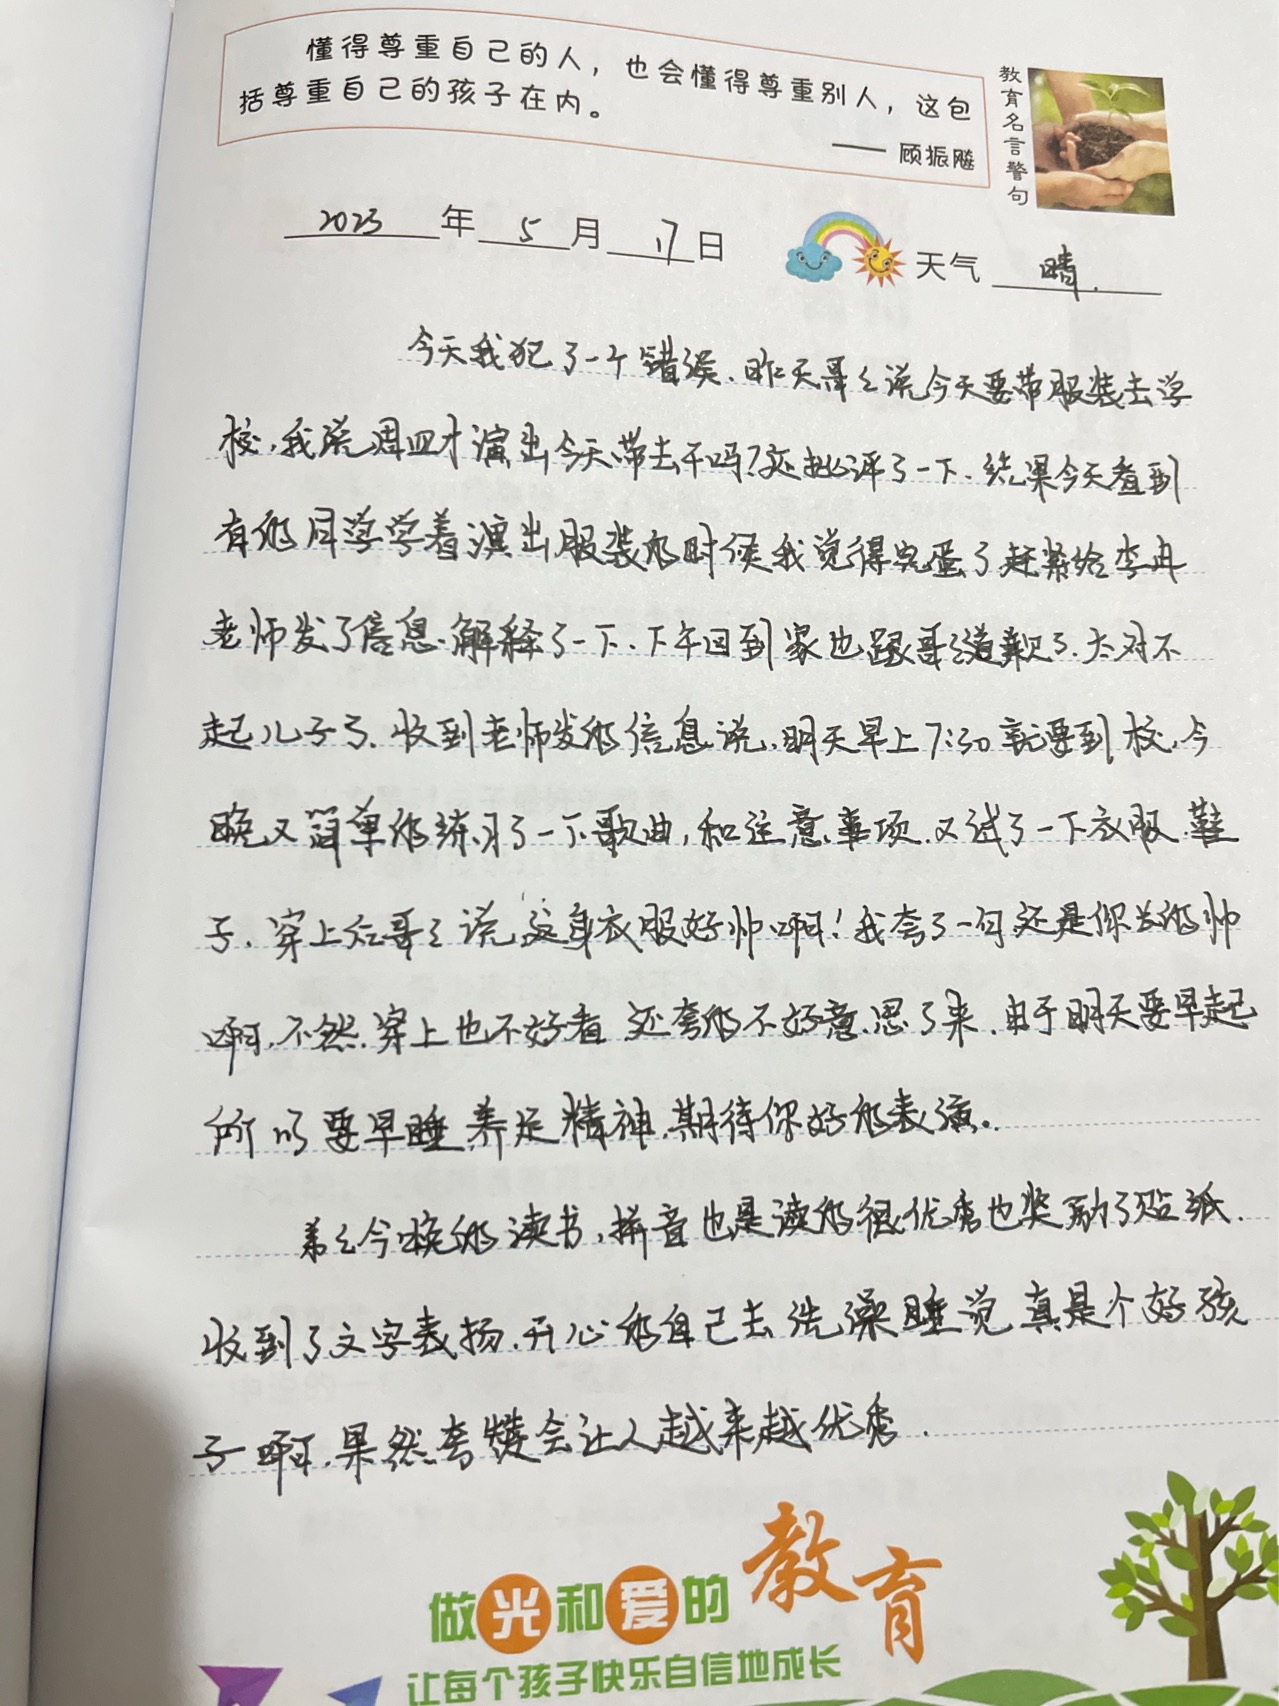 懂得尊重自己的人，也会懂得尊重别人，这包
括尊重自己的孩子在内。
—— 顾振飚
教育名言警句
2023年5月17日 天气 晴.
今天我犯了一个错误.昨天哥々说今天要带服装去学
校,我说周四才演出今天带去干吗?还批评了一下.结果今天看到
有的同学学着演出服装的时侯我觉得完蛋了赶紧给李冉
老师发了信息.解释了一下.下午回到家也跟哥々道歉了.太对不
起儿子了.收到老师发的信息说,明天早上7:30就要到校,今
晚又简单的练习了一下歌曲,和注意事项.又试了一下衣服.鞋
子.穿上后哥々说这身衣服好帅啊!我夸了一句还是你长的帅
啊,不然穿上也不好看 还夸的不好意思了来.由于明天要早起
所以要早睡养足精神.期待你好的表演。
弟々今晚的读书,拼音也是读的很优秀也奖励了贴纸.
收到了文字表扬.开心的自己去洗澡睡觉 真是个好孩
子啊.果然夸赞会让人越来越优秀.
做光和爱的教育
让每个孩子快乐自信地成长